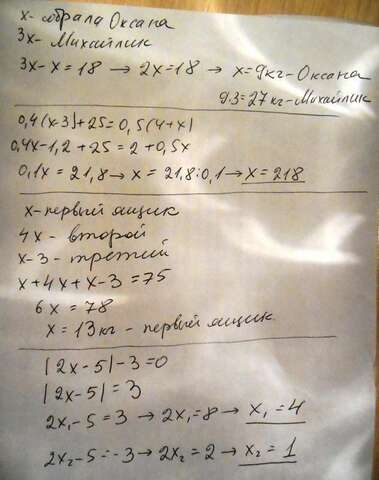 x - собрала Оксана
3x - Михайлик
3x - x = 18 → 2x = 18 → x = 9 кг - Оксана
9·3 = 27 кг - Михайлик
0,4(x-3)+25 = 0,5(4+x)
0,4x - 1,2 + 25 = 2 + 0,5x
0,1x = 21,8 → x = 21,8 : 0,1 → x = 218
x - первый ящик
4x - второй
x - 3 - третий
x + 4x + x - 3 = 75
6x = 78
x = 13 кг - первый ящик
|2x - 5| - 3 = 0
|2x - 5| = 3
2x₁ - 5 = 3 → 2x₁ = 8 → x₁ = 4
2x₂ - 5 = -3 → 2x₂ = 2 → x₂ = 1